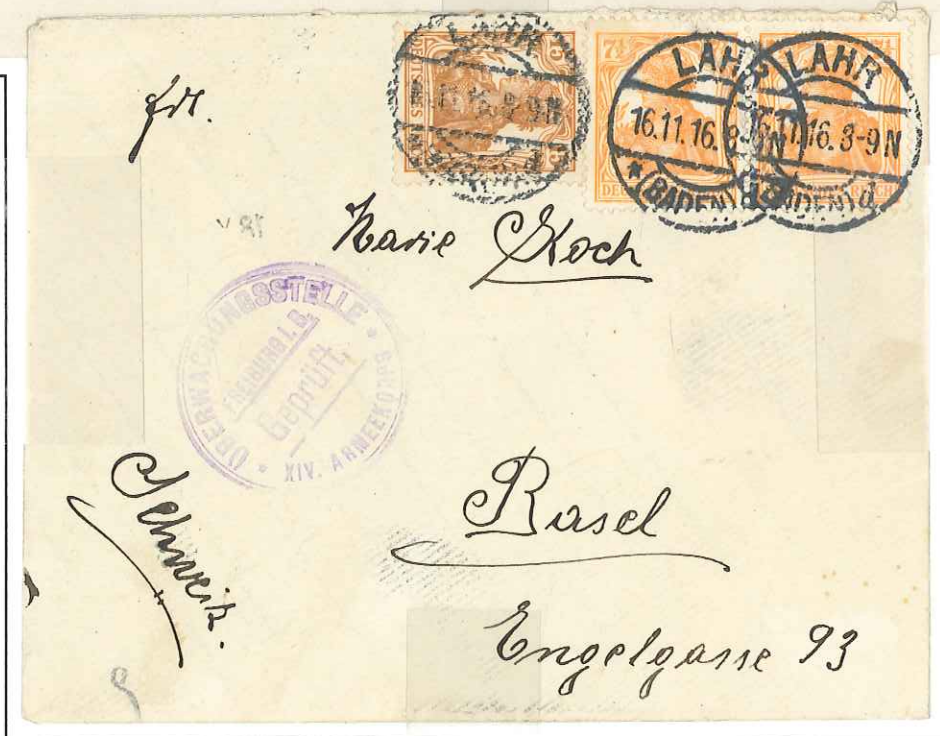 LAHR
16.11.16. 8-9N
(BADEN) d
LAHR
16.11.16. 8-9N
(BADEN) d
LAHR
16.11.16. 8-9N
(BADEN) d
15
7½
DEUTSCHES REICH
Frl.
Marie Koch
ÜBERWACHUNGSSTELLE
FREIBURG I. B.
Geprüft
XIV. ARMEEKORPS
Schweiz.
Basel
Engelgasse 93